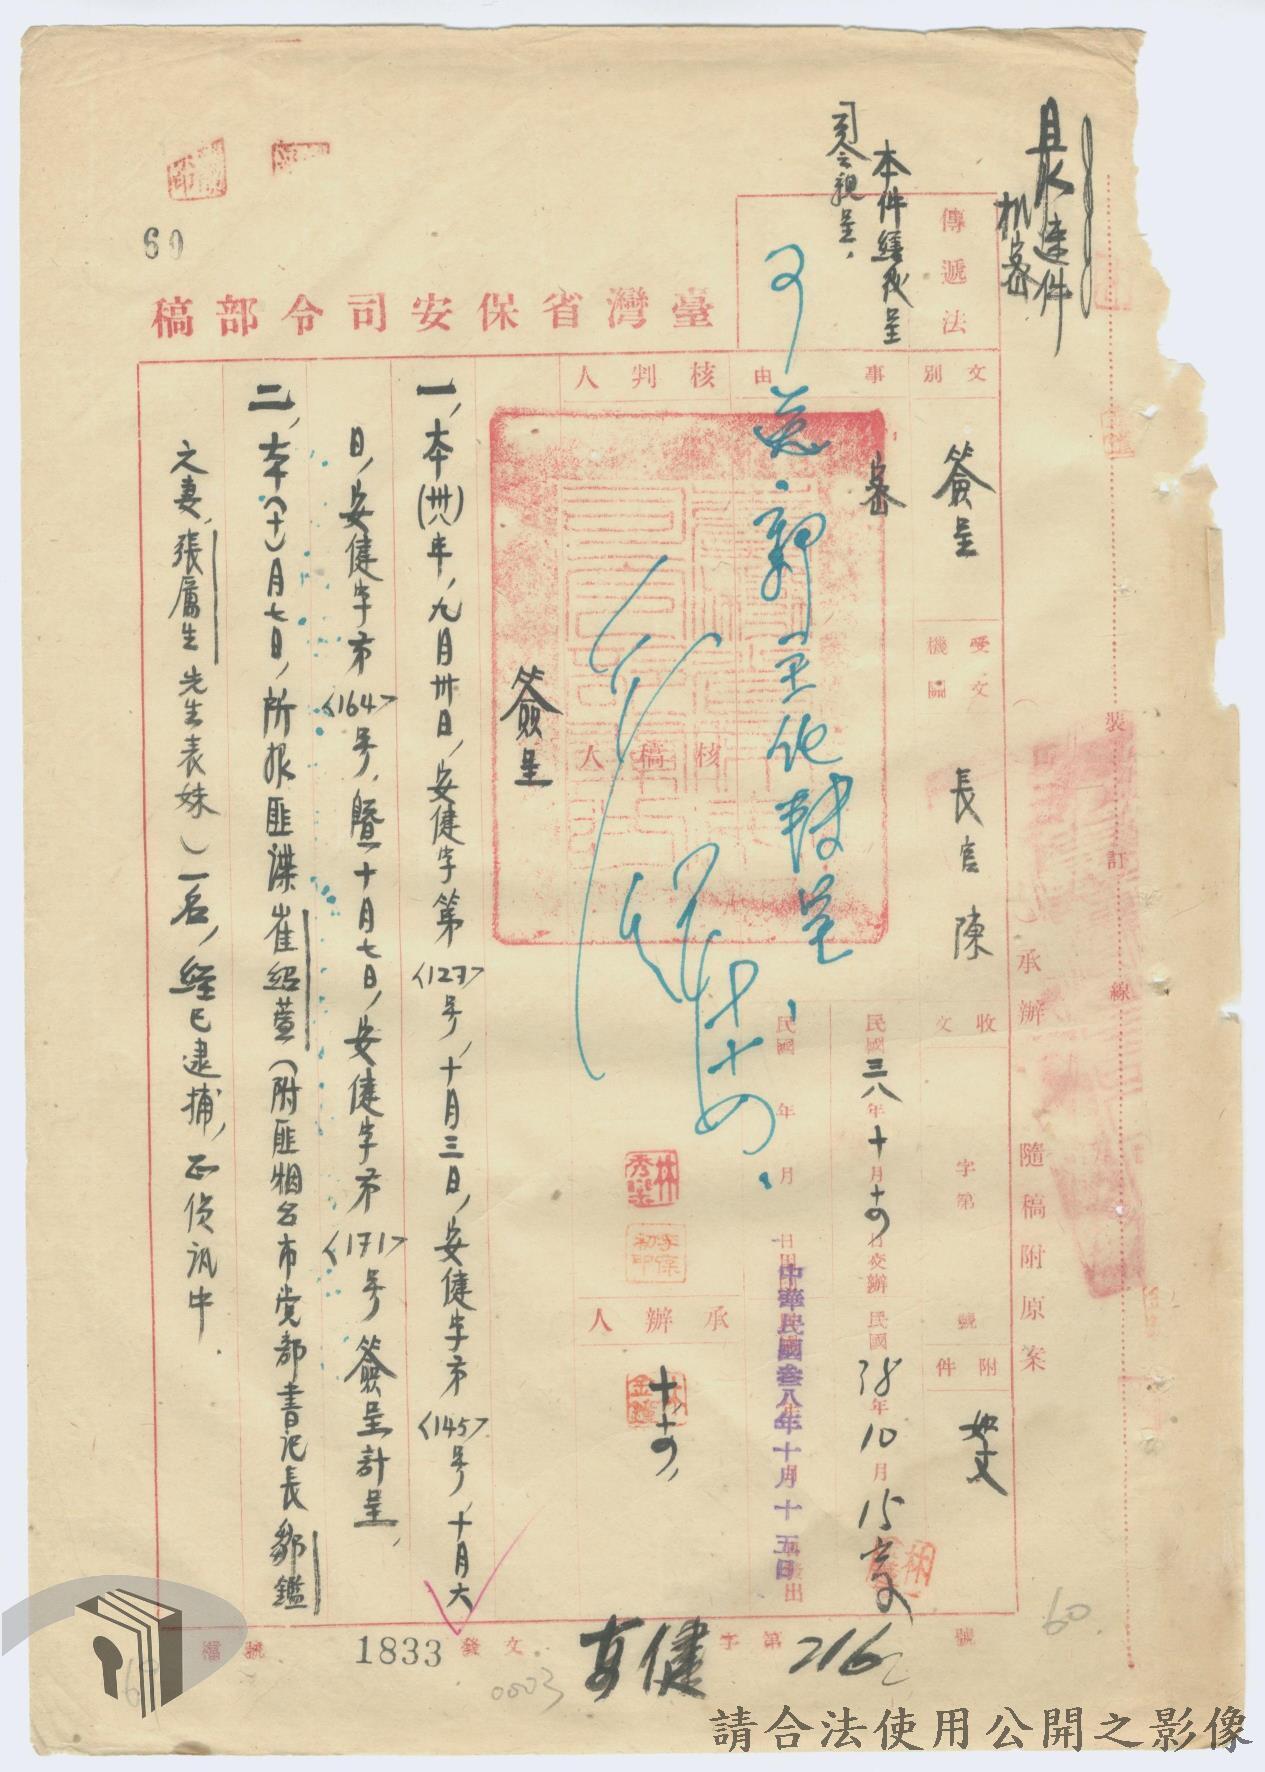 最速件
機密
本件繕後呈
司令親呈。
60
傳遞法
臺灣省保安司令部稿
文別
簽呈
受文機關
長官陳
事由
密
核判人
核稿人
承辦人
收文
字第
號
附件
如文
民國三八年十月十四日交辦
民國38年10月15
中華民國叁八年十月十五日
十、十四、
裝訂線
承辦
隨稿附原案
簽呈
一、本(卅八)年、九月卅日、安健字第<127>号、十月三日、安健字苐<145>号、十月六
日、安健字苐<164>号、暨十月七日、安健字苐<171>号簽呈計呈、
二、本(十)月七日、所报匪諜崔紹萱(附匪烟台市党部書记長鄒鑑
之妻、張厲生先生表妹)一名、經已逮捕、正侦訊中.
檔號
1833
發文
0003
安健字第216號
60
請合法使用公開之影像